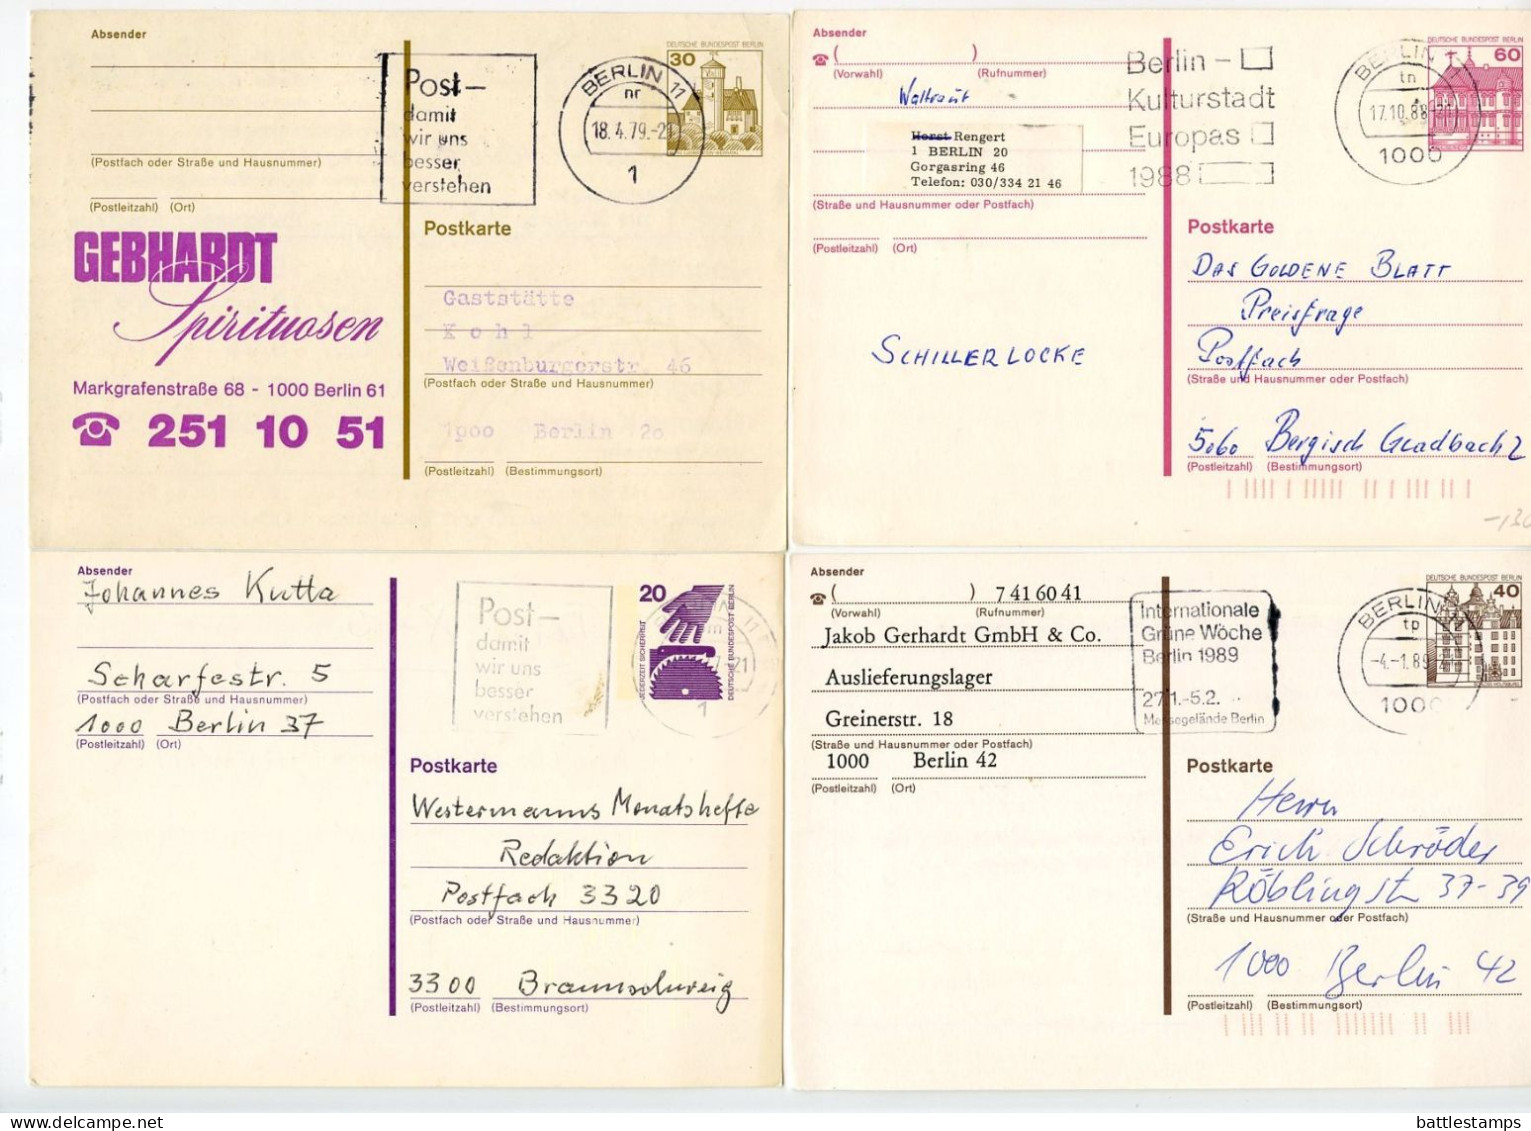 Absender
(Postfach oder Straße und Hausnummer)
(Postleitzahl) (Ort)
GEBHARDT
Spirituosen
Markgrafenstraße 68 - 1000 Berlin 61
☎ 251 10 51
Post–
damit
wir uns
besser
verstehen
BERLIN 11
nr
18.4.79.-21
1
DEUTSCHE BUNDESPOST BERLIN
30
Postkarte
Gaststätte
Kohl
Weißenburgerstr. 46
(Postfach oder Straße und Hausnummer)
1000 Berlin 20
(Postleitzahl) (Bestimmungsort)
Absender
☎ ( )
(Vorwahl) (Rufnummer)
Waltraut
Horst Rengert
1 BERLIN 20
Gorgasring 46
Telefon: 030/334 21 46
(Straße und Hausnummer oder Postfach)
(Postleitzahl) (Ort)
SCHILLERLOCKE
Berlin –
Kulturstadt
Europas
1988
BERLIN
tn
17.10.88
1000
DEUTSCHE BUNDESPOST BERLIN
60
Postkarte
DAS GOLDENE BLATT
Preisfrage
Postfach
(Straße und Hausnummer oder Postfach)
5060 Bergisch Gladbach 2
(Postleitzahl) (Bestimmungsort)
-130
Absender
Johannes Kutta
Scharfestr. 5
(Postfach oder Straße und Hausnummer)
1000 Berlin 37
(Postleitzahl) (Ort)
Post–
damit
wir uns
besser
verstehen
1
20
JEDERZEIT SICHERHEIT
DEUTSCHE BUNDESPOST BERLIN
Postkarte
Westermanns Monatshefte
Redaktion
Postfach 3320
(Postfach oder Straße und Hausnummer)
3300 Braunschweig
(Postleitzahl) (Bestimmungsort)
Absender
☎ ( ) 7 41 60 41
(Vorwahl) (Rufnummer)
Jakob Gerhardt GmbH & Co.
Auslieferungslager
Greinerstr. 18
(Straße und Hausnummer oder Postfach)
1000 Berlin 42
(Postleitzahl) (Ort)
Internationale
Grüne Woche
Berlin 1989
27.1.-5.2.
Messegelände Berlin
BERLIN
tp
-4.-1.89
1000
DEUTSCHE BUNDESPOST BERLIN
40
Postkarte
Herrn
Erich Schröder
Röblingstr 37-39
(Straße und Hausnummer oder Postfach)
1000 Berlin 42
(Postleitzahl) (Bestimmungsort)
battlestamps